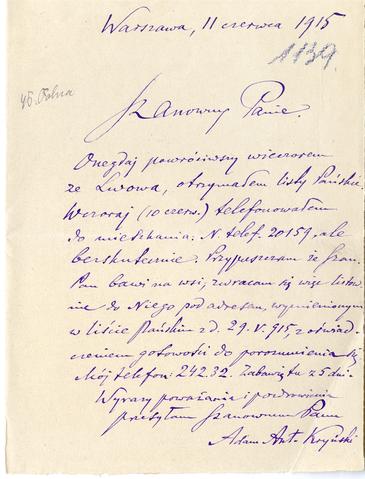 Warszawa, 11 czerwca 1915
1139.
Szanowny Panie.
Onegdaj powróciwszy wieczorem
ze Lwowa, otrzymałem listy Pańskie.
Wczoraj (10 czerw.) telefonowałem
do mieszkania: N. telef. 20159, ale
bezskutecznie. Przypuszczam że Szan.
Pan bawi na wsi, zwracam się więc listow-
nie do Niego pod adresem, wymienionym
w liście Pańskim z d. 29.V.915, z oświad-
czeniem gotowości do porozumienia się.
Mój telefon: 242.32. Zabawię tu z 5 dni
Wyrazy poważania i pozdrowienia
przesyłam Szanownemu Panu
Adam Ant. Kryński